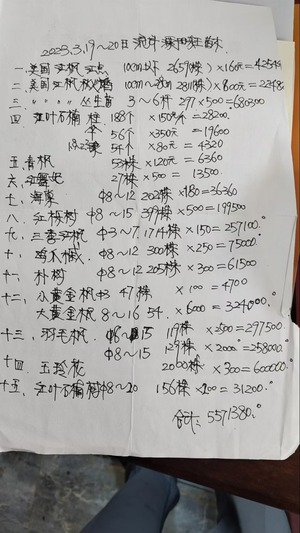 2023.3.19～20日
一.美国红枫 100cm以下 2659株 ×160元=425440
二.美国红枫 100cm～280 2811株 ×800元=22488
三. 〃 〃 〃 丛生苗 3～6杆 277×500=680300
四 红叶石楠 柱 188个 ×150个=28200
伞 56个 ×350元 =19600
54个 ×80元=4320
五.青枫 53株×120元=6360
27株×500=13500
七.海棠 φ8～12 202株×180=36360
八.红榉树 φ8～15 399株×500=199500
九.三季红枫 φ3～7.1714株×150=257100.
φ8～12 300株×250=75000.
十一 朴树 φ8～12 205株×300=61500
十二.小黄金枫 φ3 47株 ×100=4700
大黄金枫 8～16 54.×6000=324000.
十三.羽毛枫 φ8～15 119株×2500=297500.
φ8～15 129株×2000=258000.
十四.玉玲花 2000株×300=600000.
十五.红叶石楠树φ8～20 156株×200=31200.
合计:5571380.